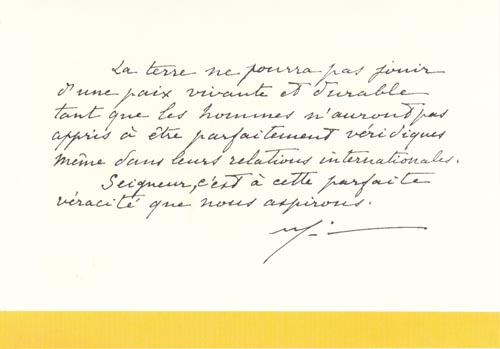 La terre ne pourra pas jouir
d'une paix vivante et durable
tant que les hommes n'auront pas
appris à être parfaitement véridiques
même dans leurs relations internationales.
Seigneur, c'est à cette parfaite
véracité que nous aspirons.